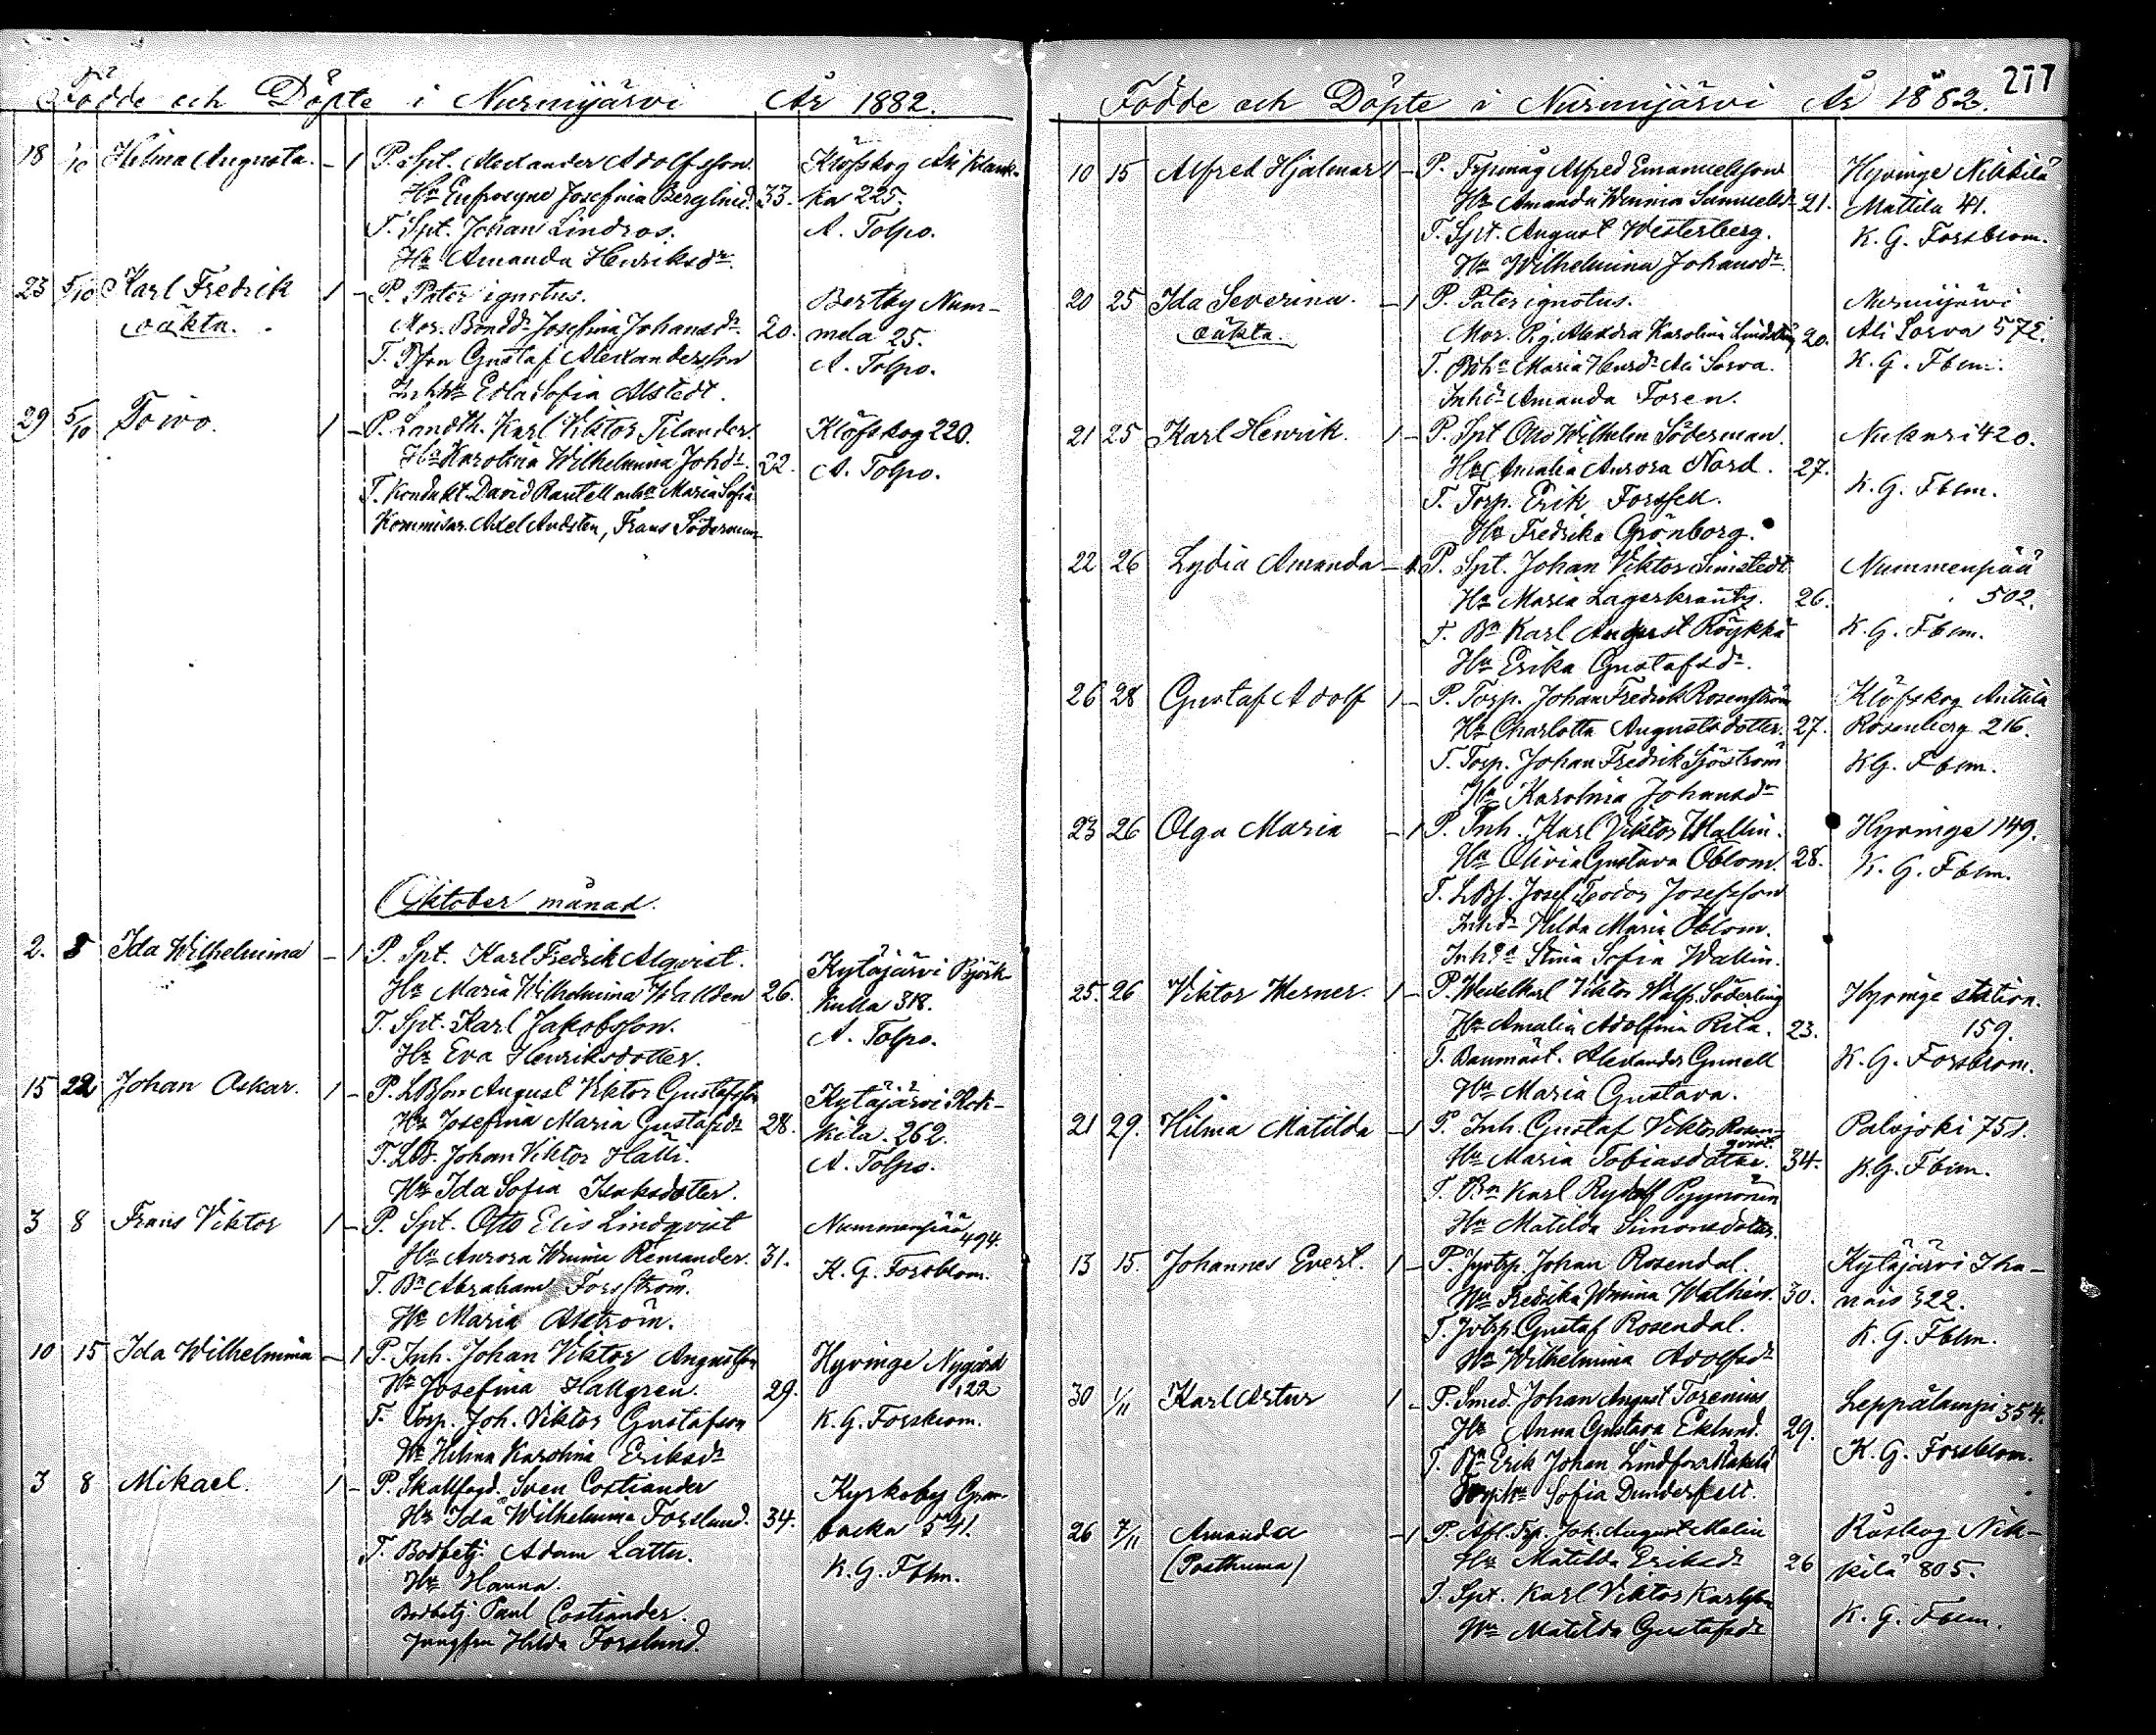 Födde och Döpte i Nurmijärvi År 1882.
18 /10 Hilma Augusta. - 1 P. Spt. Alexander Adolfsson. Klöfskog Ali Klauk-
Hu Eufrosyne Josefina Berglund. 33. ka 225.
T. Spt. Johan Lindros. A. Tolpo.
Hu Amanda Henriksdr.
23 5/10 Karl Fredrik 1 - P. Pater ignotus. Bertby Num-
oäkta. Mor. Bonddr Josefina Johansdr. 20. mela 25.
T. Gustaf Alexandersson A. Tolpo.
Edla Sofia Alstedt.
29 5/10 Toivo. 1 - P. Landth. Karl Viktor Tilander. Klöfskog 220.
Hu Karolina Wilhelmina Johdr. 22. A. Tolpo.
T. Kondukt. David Maria Sofia
Kommisar. Axel Frans Söderman
Oktober månad.
2. 8 Ida Wilhelmina - 1 P. Spt. Karl Fredrik Alqvist. Kytäjärvi Björk-
Hu Maria Wilhelmina Wallden 26. kulla 318.
T. Spt. Karl Jakobsson. A. Tolpo.
Hu Eva Henriksdotter.
15 22 Johan Oskar. 1 - P. LBson August Viktor Gustafsson Kytäjärvi Rok-
Hu Josefina Maria Gustafsdr 28. kila. 262.
T. LB. Johan Viktor Halli. A. Tolpo.
Hu Ida Sofia Isaksdotter.
3 8 Frans Viktor 1 - P. Spt. Otto Elis Lindqvist Nummenpää 494.
Hu Aurora Wmina Remander. 31. K. G. Forsblom.
T. Bn Abraham Forsström.
Hu Maria Alström.
10 15 Ida Wilhelmina - 1 P. Inh. Johan Viktor Augustsson Hyvinge Nygård
Hu Josefina Hallgren. 29. 122
T. Torp. Joh. Viktor Gustafsson K. G. Forsblom.
Hu Hilma Karolina Eriksdr
3 8 Mikael. 1 - P. Skallfogd. Sven Costiander Kyrkoby Gran-
Hu Ida Wilhelmina Forslund. 34. backa 541.
T. Bodbetj. Adam Lattu. K. G. Fblm.
Hu Hanna.
Bodbetj. Paul Costiander.
Jungfru Hilda Forslund.
277
Födde och Döpte i Nurmijärvi År 1882.
10 15 Alfred Hjalmar 1 - P. Alfred Emanuelsson Hyvinge Nikkilä
Hu Amanda Wmina Samuelsdr 21. Mattila 41.
T. Spt. August Westerberg. K. G. Forsblom.
Hu Wilhelmina Johansdr.
20 25 Ida Severina. - 1 P. Pater ignotus. Nurmijärvi
oäkta. Mor. P.g. Alexdra Karolina 20. Ali Sorva 572.
T. Maria Ali Sorva. K. G. Fblm.
Inhdr Amanda Foren.
21 25 Karl Henrik. 1 - P. Spt Otto Wilhelm Söderman. Nukari 420.
Hu Amalia Aurora Nord. 27. K. G. Fblm.
T. Torp. Erik Forssell.
Hu Fredrika Grönborg.
22 26 Lydia Amanda - 1 P. Spt. Johan Viktor Nummenpää
Hu Maria Lagerkrantz. 26. 502.
T. Bn Karl August Röykkä K. G. Fblm.
Hu Erika Gustafsdr.
26 28 Gustaf Adolf 1 - P. Torp. Johan Fredrik Rosenström Klöfskog Anttila
Hu Charlotta Augustsdotter. 27. Rosenberg 216.
T. Torp. Johan Fredrik Sjöström K. G. Fblm.
Hu Karolina Johansdr
23 26 Olga Maria - 1 P. Inh. Karl Viktor Wallin. Hyvinge 149.
Hu Olivia Gustava Öblom. 28. K. G. Fblm.
T. LBs. Josef Teodor Josefsson
Inhdr Hilda Maria Öblom.
Stina Sofia Wallin.
25. 26 Viktor Werner. 1 - P. Wexelkarl Viktor Söderling Hyvinge station.
Hu Amalia Adolfina Rila. 23. 159.
T. Banmäst. Alexander Gunell K. G. Forsblom.
Hu Maria Gustava.
21 29. Hilma Matilda - 1 P. Inh. Gustaf Viktor Rosen- Palojoki 751.
qvist.
Hu Maria Tobiasdotter. 34. K. G. Fblm.
T. Bn Karl Pyynönen
Hu Matilda Simonsdotter.
13 15. Johannes Evert. 1 - P. Johan Rosendal. Kytäjärvi Iha-
Hu Fredrika Wmina 30. nais 322.
T. Gustaf Rosendal. K. G. Fblm.
Hu Wilhelmina Adolfsdr
30 1/11 Karl Artur 1 - P. Smed. Johan August Torenius Leppälampi 354.
Hu Anna Gustava Eklund. 29. K. G. Forsblom.
T. Bn Erik Johan Lindfors
Sofia Dunderfelt.
26 7/11 Amanda - 1 P. Afl. Trp. Joh. August Malin Råskog Nik-
(Posthuma) Hu Matilda Eriksdr 26 kilä 805.
T. Spt. Karl Viktor Karlsson K. G. Fblm.
Hu Matilda Gustafsdr